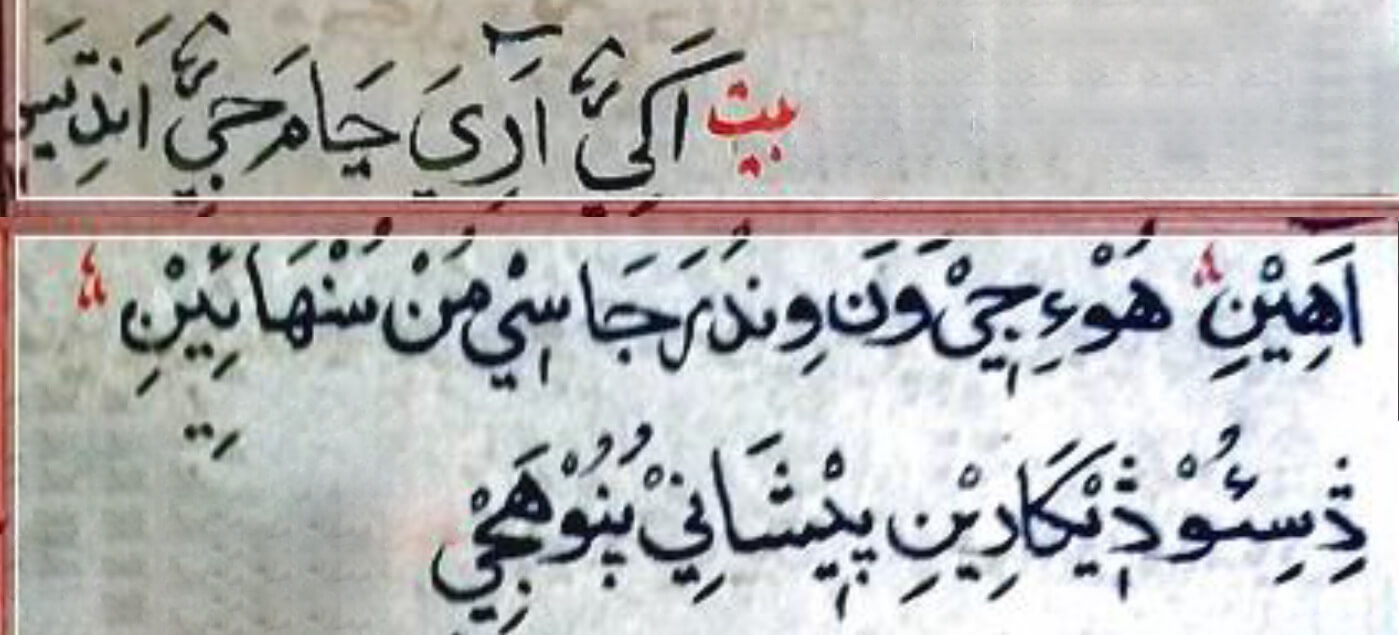 بيت اَکِيَّ آرِيَ جَامَ جِيَّ اَندِ
اَهِيْنِ هُوْءِ جِيْ وَنَ وِندُرَ جَا سِيْ مُنْ سُنْهَائِيْنِ
ڏِسِئُوْ ڏيْکَارِيْنِ پيْشَانِيْ پُنُوْ هَجِيْ